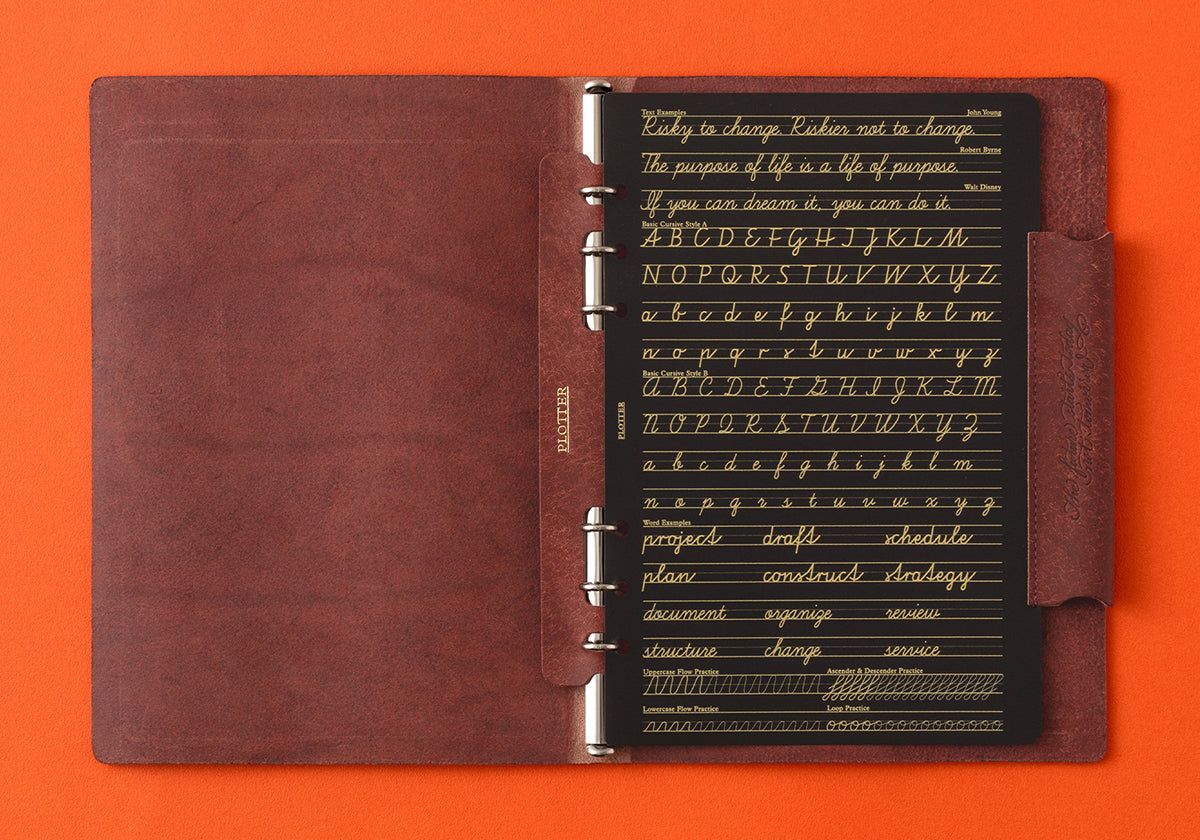 PLOTTER
PLOTTER
Text Examples John Young
Risky to change. Riskier not to change.
Robert Byrne
The purpose of life is a life of purpose.
Walt Disney
If you can dream it, you can do it.
Basic Cursive Style A
A B C D E F G H I J K L M
N O P Q R S T U V W X Y Z
a b c d e f g h i j k l m
n o p q r s t u v w x y z
Basic Cursive Style B
A B C D E F G H I J K L M
N O P Q R S T U V W X Y Z
a b c d e f g h i j k l m
n o p q r s t u v w x y z
Word Examples
project draft schedule
plan construct strategy
document organize review
structure change service
Uppercase Flow Practice Ascender & Descender Practice
Lowercase Flow Practice Loop Practice